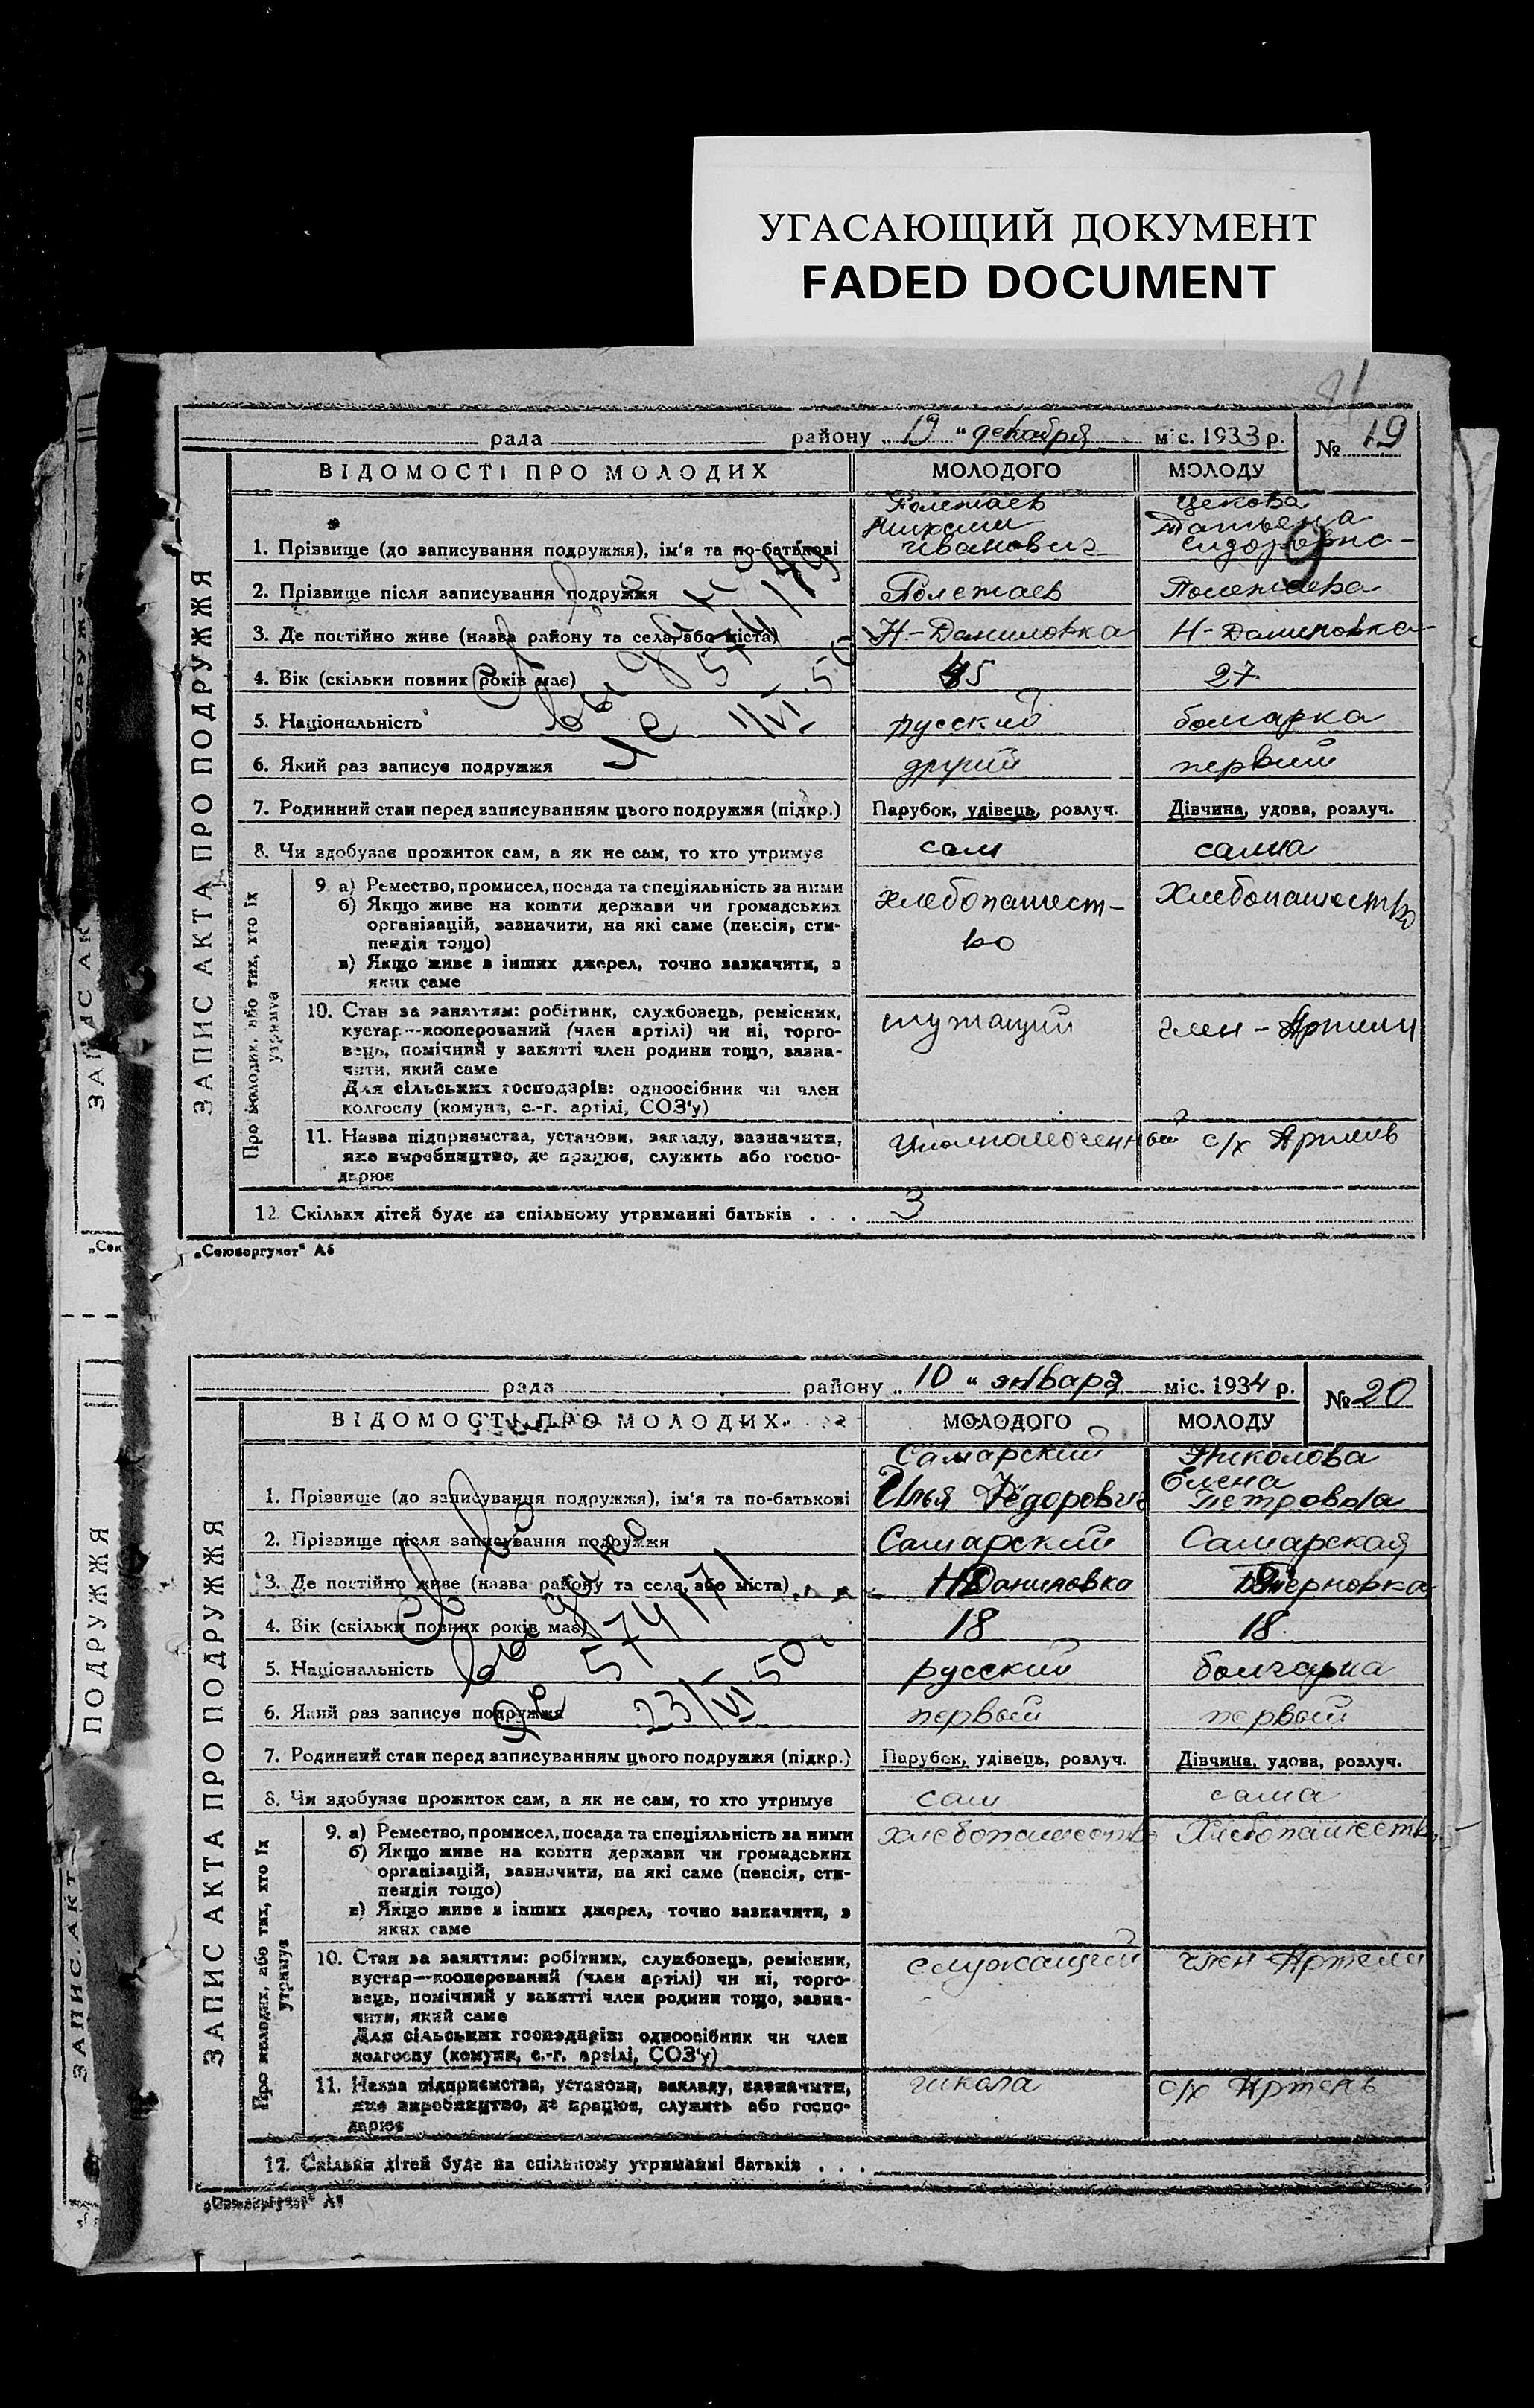 УГАСАЮЩИЙ ДОКУМЕНТ
FADED DOCUMENT
рада району „19“ декабря міс. 1933 р. № 19
ВІДОМОСТІ ПРО МОЛОДИХ МОЛОДОГО МОЛОДУ
ЗАПИС АКТА ПРО ПОДРУЖЖЯ
Полежаев Цекова
Татьена
1. Прізвище (до записування подружжя), ім'я та по-батькові Иванович
2. Прізвище після записування подружжя Полежаев Полежаева
3. Де постійно живе (назва району та села, або міста) Н-Даниловка Н-Даниловка
4. Вік (скільки повних років має) 45 27
5. Національність русский болгарка
6. Який раз записує подружжя другий первый
7. Родинний стан перед записуванням цього подружжя (підкр.) Парубок, удівець, розлуч. Дівчина, удова, розлуч.
8. Чи здобував прожиток сам, а як не сам, то хто утримує сам сама
Про молодих, або тих, хто їх утримує
9. а) Ремество, промисел, посада та спеціяльність за ними хлебопашест- Хлебопашество
б) Якщо живе на кошти держави чи громадських во
організацій, зазначити, на які саме (пенсія, сти-
пендія тощо)
в) Якщо живе з інших джерел, точно зазначити, з
яких саме
10. Стан за заняттям: робітник, службовець, ремісник, служащий член-Артели
кустар—кооперований (член артілі) чи ні, торго-
вець, помічний у занятті член родини тощо, зазна-
чити, який саме
Для сільських господарів: одноосібник чи член
колгоспу (комуни, с.-г. артілі, СОЗ'у)
11. Назва підприємства, установи, закладу, зазначити, Уполномоченный с/х Артель
яке виробництво, де працює, служить або госпо-
дарює
12. Скільки дітей буде на спільному утриманні батьків . . . 3
Св во
выдано
Яе 574179
11/VI 50
„Союзоргучет“ А5
рада району „10“ января міс. 1934 р. № 20
ВІДОМОСТІ ПРО МОЛОДИХ МОЛОДОГО МОЛОДУ
ЗАПИС АКТА ПРО ПОДРУЖЖЯ
Самарский Николова
Елена
1. Прізвище (до записування подружжя), ім'я та по-батькові Илья Фёдорович Петровна
2. Прізвище після записування подружжя Самарский Самарская
3. Де постійно живе (назва району та села, або міста) Н Даниловка Терновка
4. Вік (скільки повних років має) 18 18
5. Національність русский болгарка
6. Який раз записує подружжя первый первый
7. Родинний стан перед записуванням цього подружжя (підкр.) Парубок, удівець, розлуч. Дівчина, удова, розлуч.
8. Чи здобував прожиток сам, а як не сам, то хто утримує сам сама
Про молодих, або тих, хто їх утримує
9. а) Ремество, промисел, посада та спеціяльність за ними хлебопашество Хлебопашество
б) Якщо живе на кошти держави чи громадських
організацій, зазначити, на які саме (пенсія, сти-
пендія тощо)
в) Якщо живе з інших джерел, точно зазначити, з
яких саме
10. Стан за заняттям: робітник, службовець, ремісник, служащий член Артели
кустар—кооперований (член артілі) чи ні, торго-
вець, помічний у занятті член родини тощо, зазна-
чити, який саме
Для сільських господарів: одноосібник чи член
колгоспу (комуни, с.-г. артілі, СОЗ'у)
11. Назва підприємства, установи, закладу, зазначити, школа с/х Артель
яке виробництво, де працює, служить або госпо-
дарює
12. Скільки дітей буде на спільному утриманні батьків . . .
Св во
выдано
Яе 574171
23/VI 50
„Союзоргучет“ А5